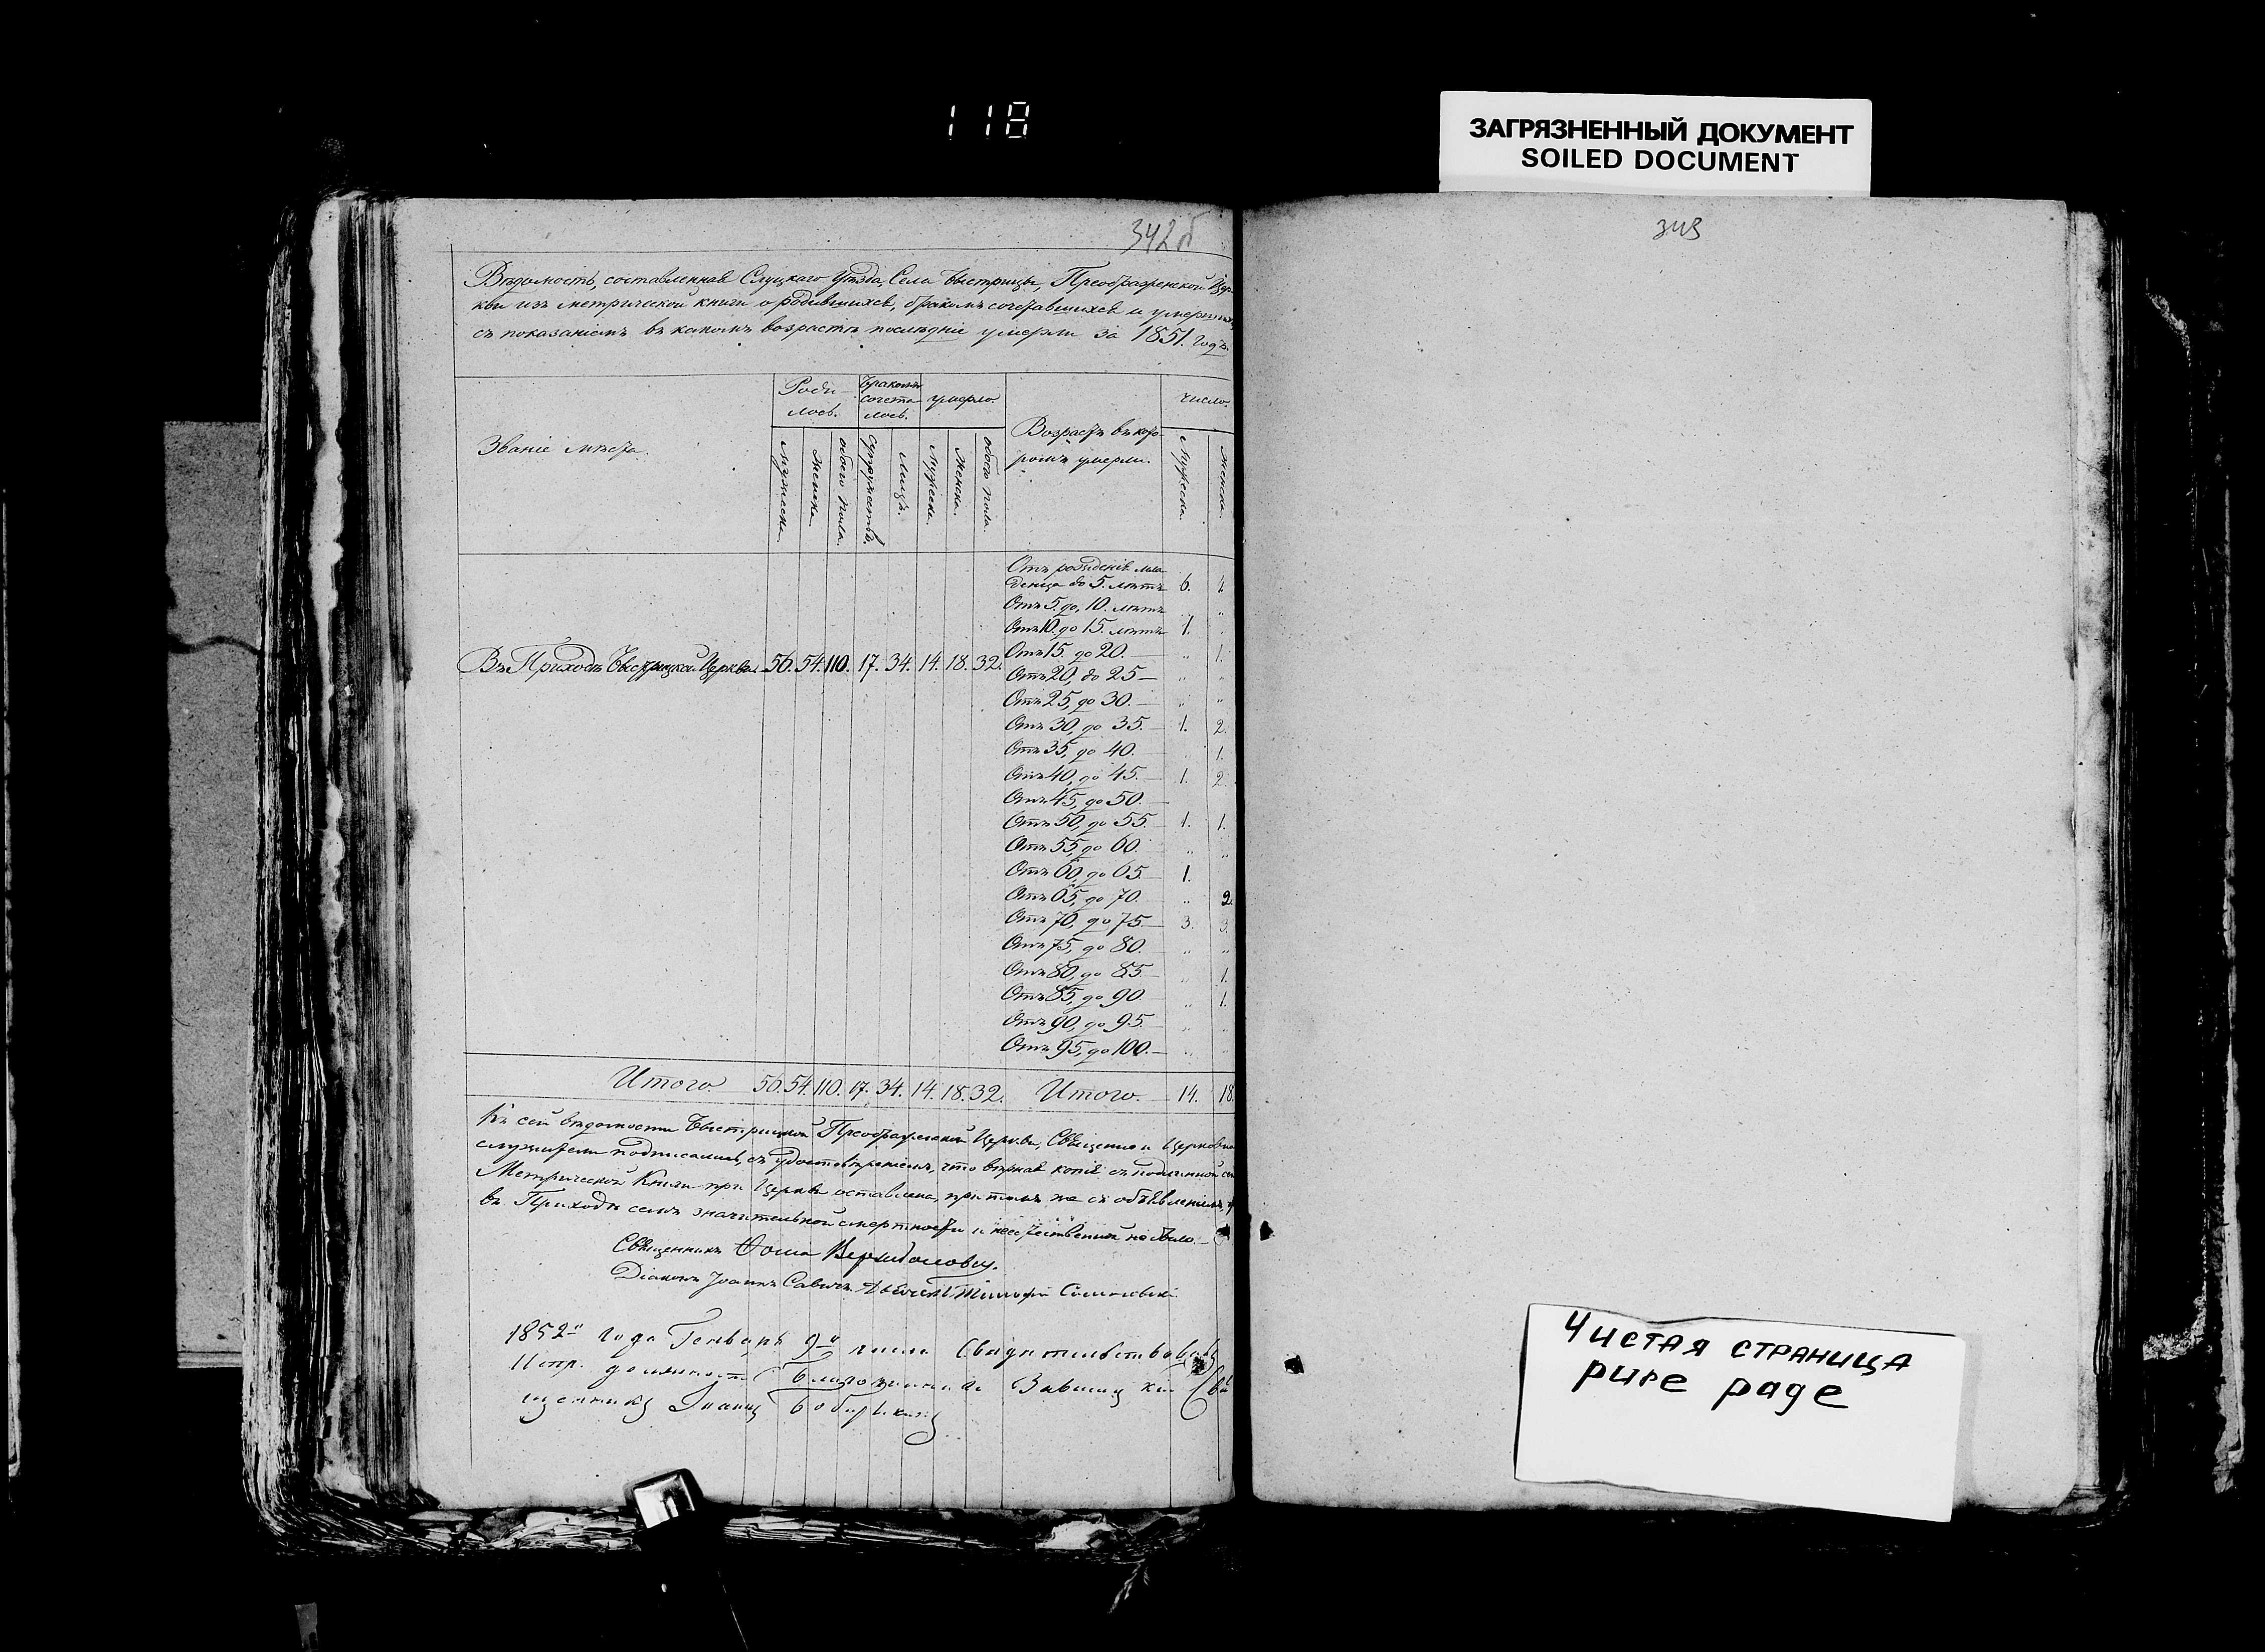 118
ЗАГРЯЗНЕННЫЙ ДОКУМЕНТ
SOILED DOCUMENT
342б
Вѣдомость, составленная Слуцкаго Уѣзда, Села Быстрицы, Преображенской Цер-
кви изъ метрической книги о родившихся, бракомъ сочетавшихся и умершихъ,
съ показаніемъ въ какомъ возрастѣ послѣдніе умерли за 1851. годъ.
Званіе мѣста.
Роди-
лось.
Бракомъ
сочета-
лось.
умерло.
Возрастъ въ кото-
ромъ умерли.
число.
Мужеска.
Женска.
обоего пола.
Супружествъ.
лицъ.
Мужеска.
Женска.
обоего пола.
Мужеска.
Женска.
Отъ рожденія мла-
денца до 5. лѣтъ 6. 4.
Отъ 5. до, 10. лѣтъ " "
Отъ 10. до 15. лѣтъ 1.
Въ Приходѣ Быстрицкой Церкви. 56. 54. 110. 17. 34. 14. 18. 32.
Отъ 15. до 20. — " 1.
Отъ 20, до 25 — " "
Отъ 25, до 30. — " "
Отъ 30, до 35. — 1. 2.
Отъ 35, до 40. — " 1.
Отъ 40, до 45. — 1. 2.
Отъ 45, до 50. —
Отъ 50, до 55. — 1. 1.
Отъ 55, до 60. " "
Отъ 60, до 65. — 1.
Отъ 65, до 70. " 2.
Отъ 70, до 75. — 3. 3.
Отъ 75, до 80. " "
Отъ 80, до 85. — " 1.
Отъ 85, до 90. — " 1.
Отъ 90, до 95. — " "
Отъ 95, до 100. — " "
Итого. 56. 54. 110. 17. 34. 14. 18. 32. Итого. 14. 18.
Къ сей вѣдомости Быстрицкой Преображенской Церкви, Священно и Церковно
служители подписались, съ удостовѣреніемъ, что вѣрная копія съ подлинной
Метрической Книги при Церкви оставлена, при томъ же съ объявленіемъ,
въ Приходѣ семъ значительной смертности и несчастій не было.
Священникъ Фома
Діаконъ Іоаннъ Савичъ.
1852го года Генваря 9го числа Свидѣтельствовалъ
Испр. должность Благочиннаго
щенникъ Іоаннъ
343
Чистая страница
pure page